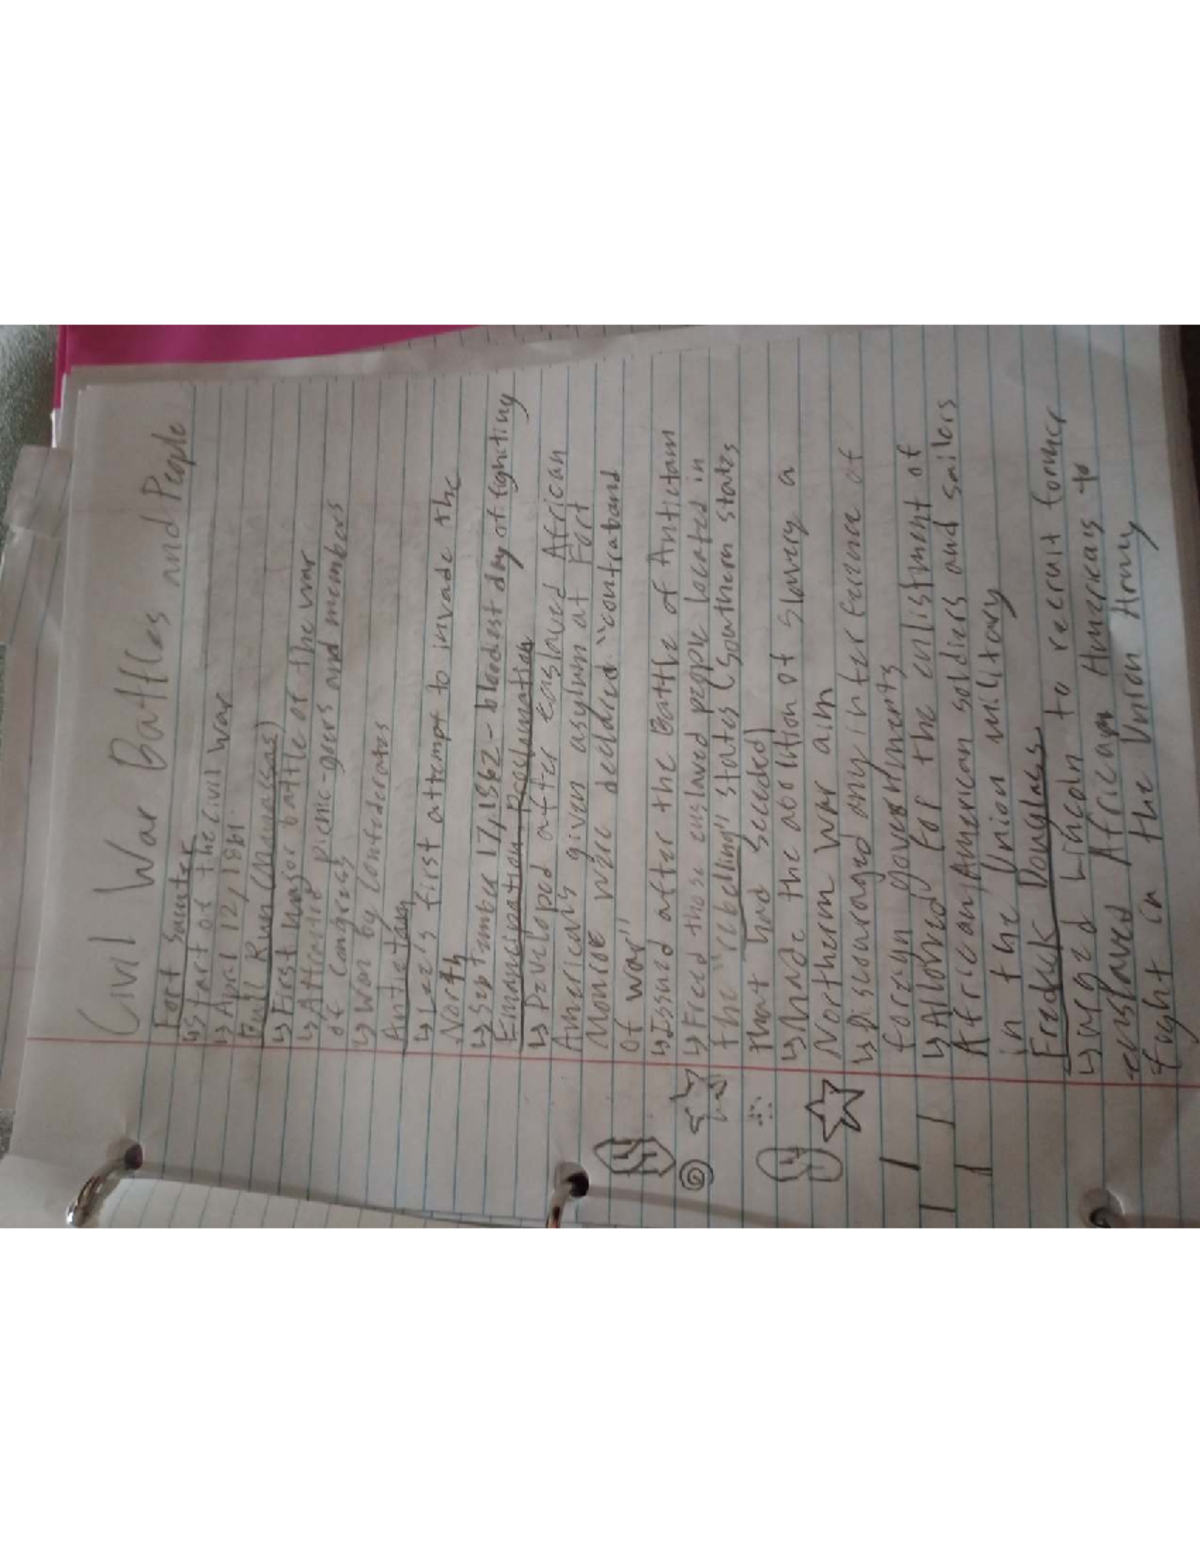 Civil War Battles and People
Fort Sumter
↳ Start of the civil war
↳ April 12, 1861
Bull Run (Manassas)
↳ First major battle of the war
↳ Attracted picnic-goers and members
of congress
↳ Won by Confederates
Antietam
↳ Lee's first attempt to invade the
North
↳ September 17, 1862 - bleedest day of fighting
Emancipation Proclamation
↳ Developed after enslaved African
Americans given asylum at Fort
Monroe were declared "contraband
of war"
↳ Issued after the Battle of Antietam
↳ Freed those enslaved people located in
the "rebelling" states (Southern states
that had seceded)
↳ Made the abolition of slavery a
Northern war aim
↳ Discouraged any interference of
foreign governments
↳ Allowed for the enlistment of
African American soldiers and sailers
in the Union military
Fredrick Douglas
↳ urged Lincoln to recruit former
enslaved African Americas to
fight in the Union Army